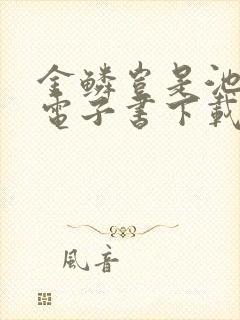 金鱗豈是池
電子書下載
風音